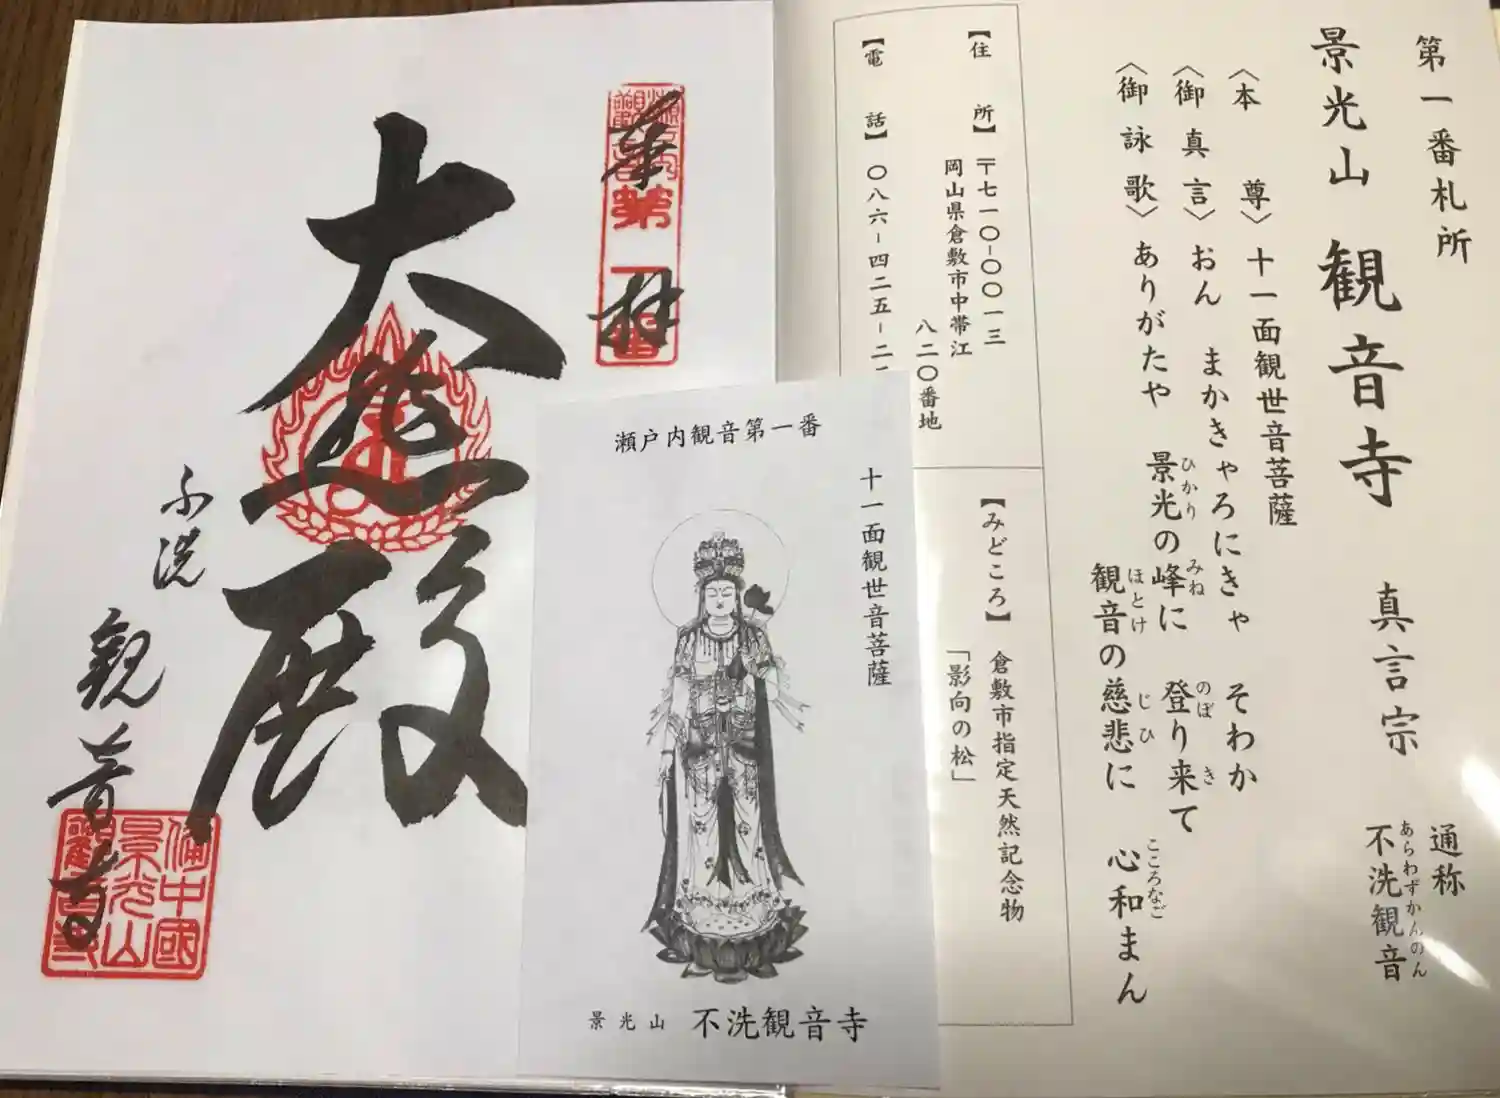 第一番札所
景光山 観音寺 真言宗 通称 不洗観音
あらわずかんのん
〈本尊〉十一面観世音菩薩
〈御真言〉おん まかきゃろにきゃ そわか
〈御詠歌〉ありがたや 景光の峰に 登り来て
ひかり みね のぼ き
観音の慈悲に 心和まん
ほとけ じひ こころなご
【住所】〒七一〇-〇〇一三
岡山県倉敷市中帯江
八二〇番地
【電話】〇八六-四二五-二
【みどころ】倉敷市指定天然記念物
「影向の松」
奉拝
第一番
大悲殿
不洗
観音寺
備中國
景光山
観音寺
瀬戸内観音第一番
十一面観世音菩薩
景光山 不洗観音寺